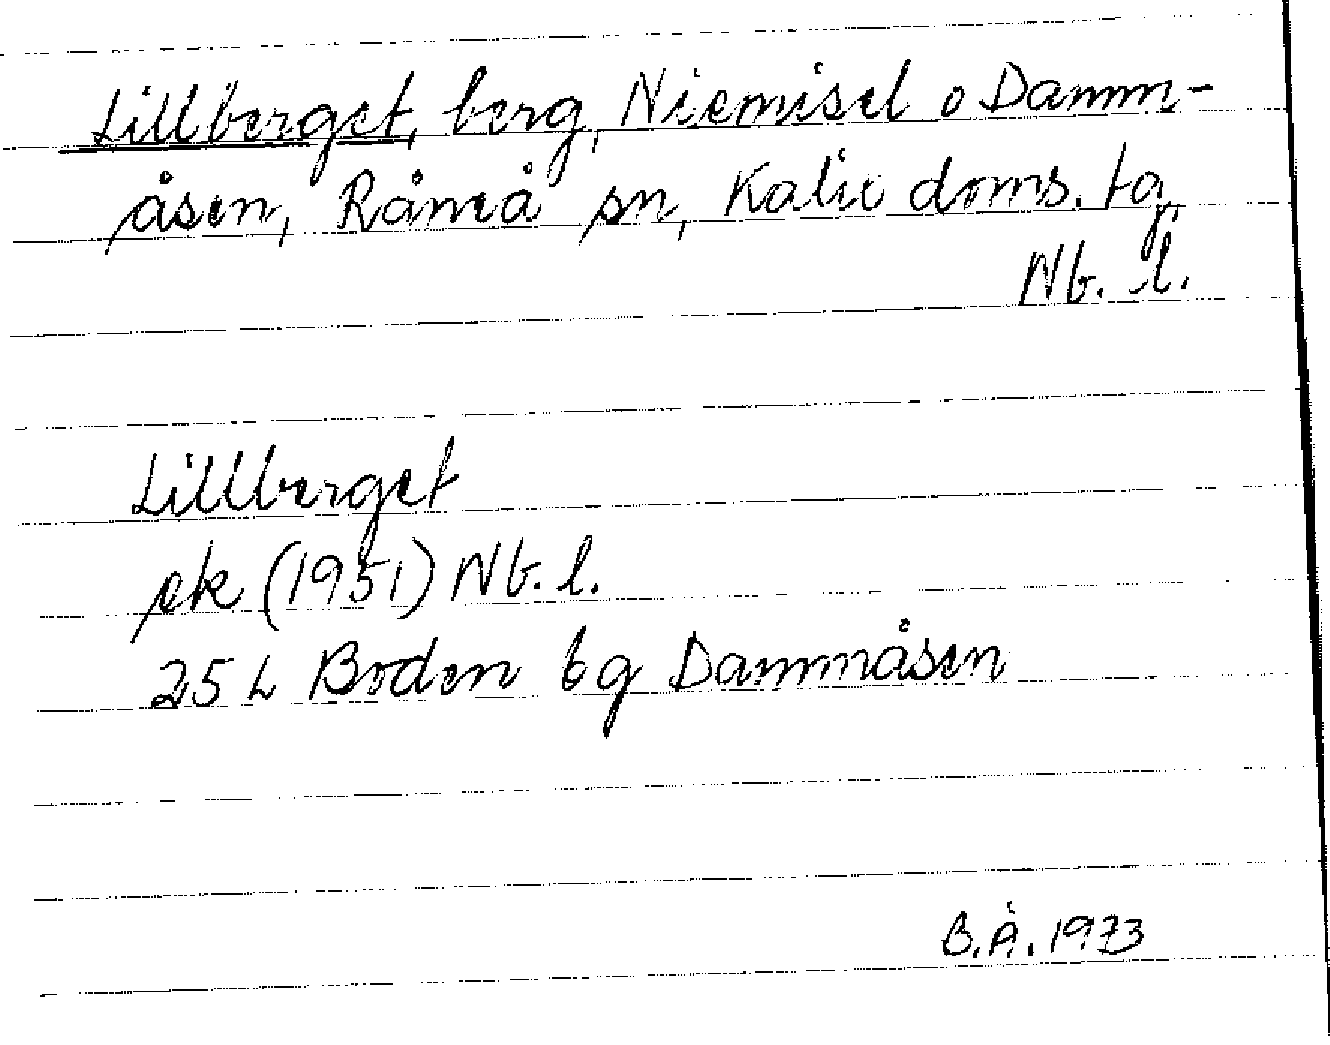 Lillberget, berg, Niemisel o Damm-
åsen, Råneå sn, Kalix doms. tg,
Nb. l.
Lillberget
ek (1951) Nb. l.
25 L Boden 6g Dammåsen
B.Å. 1973